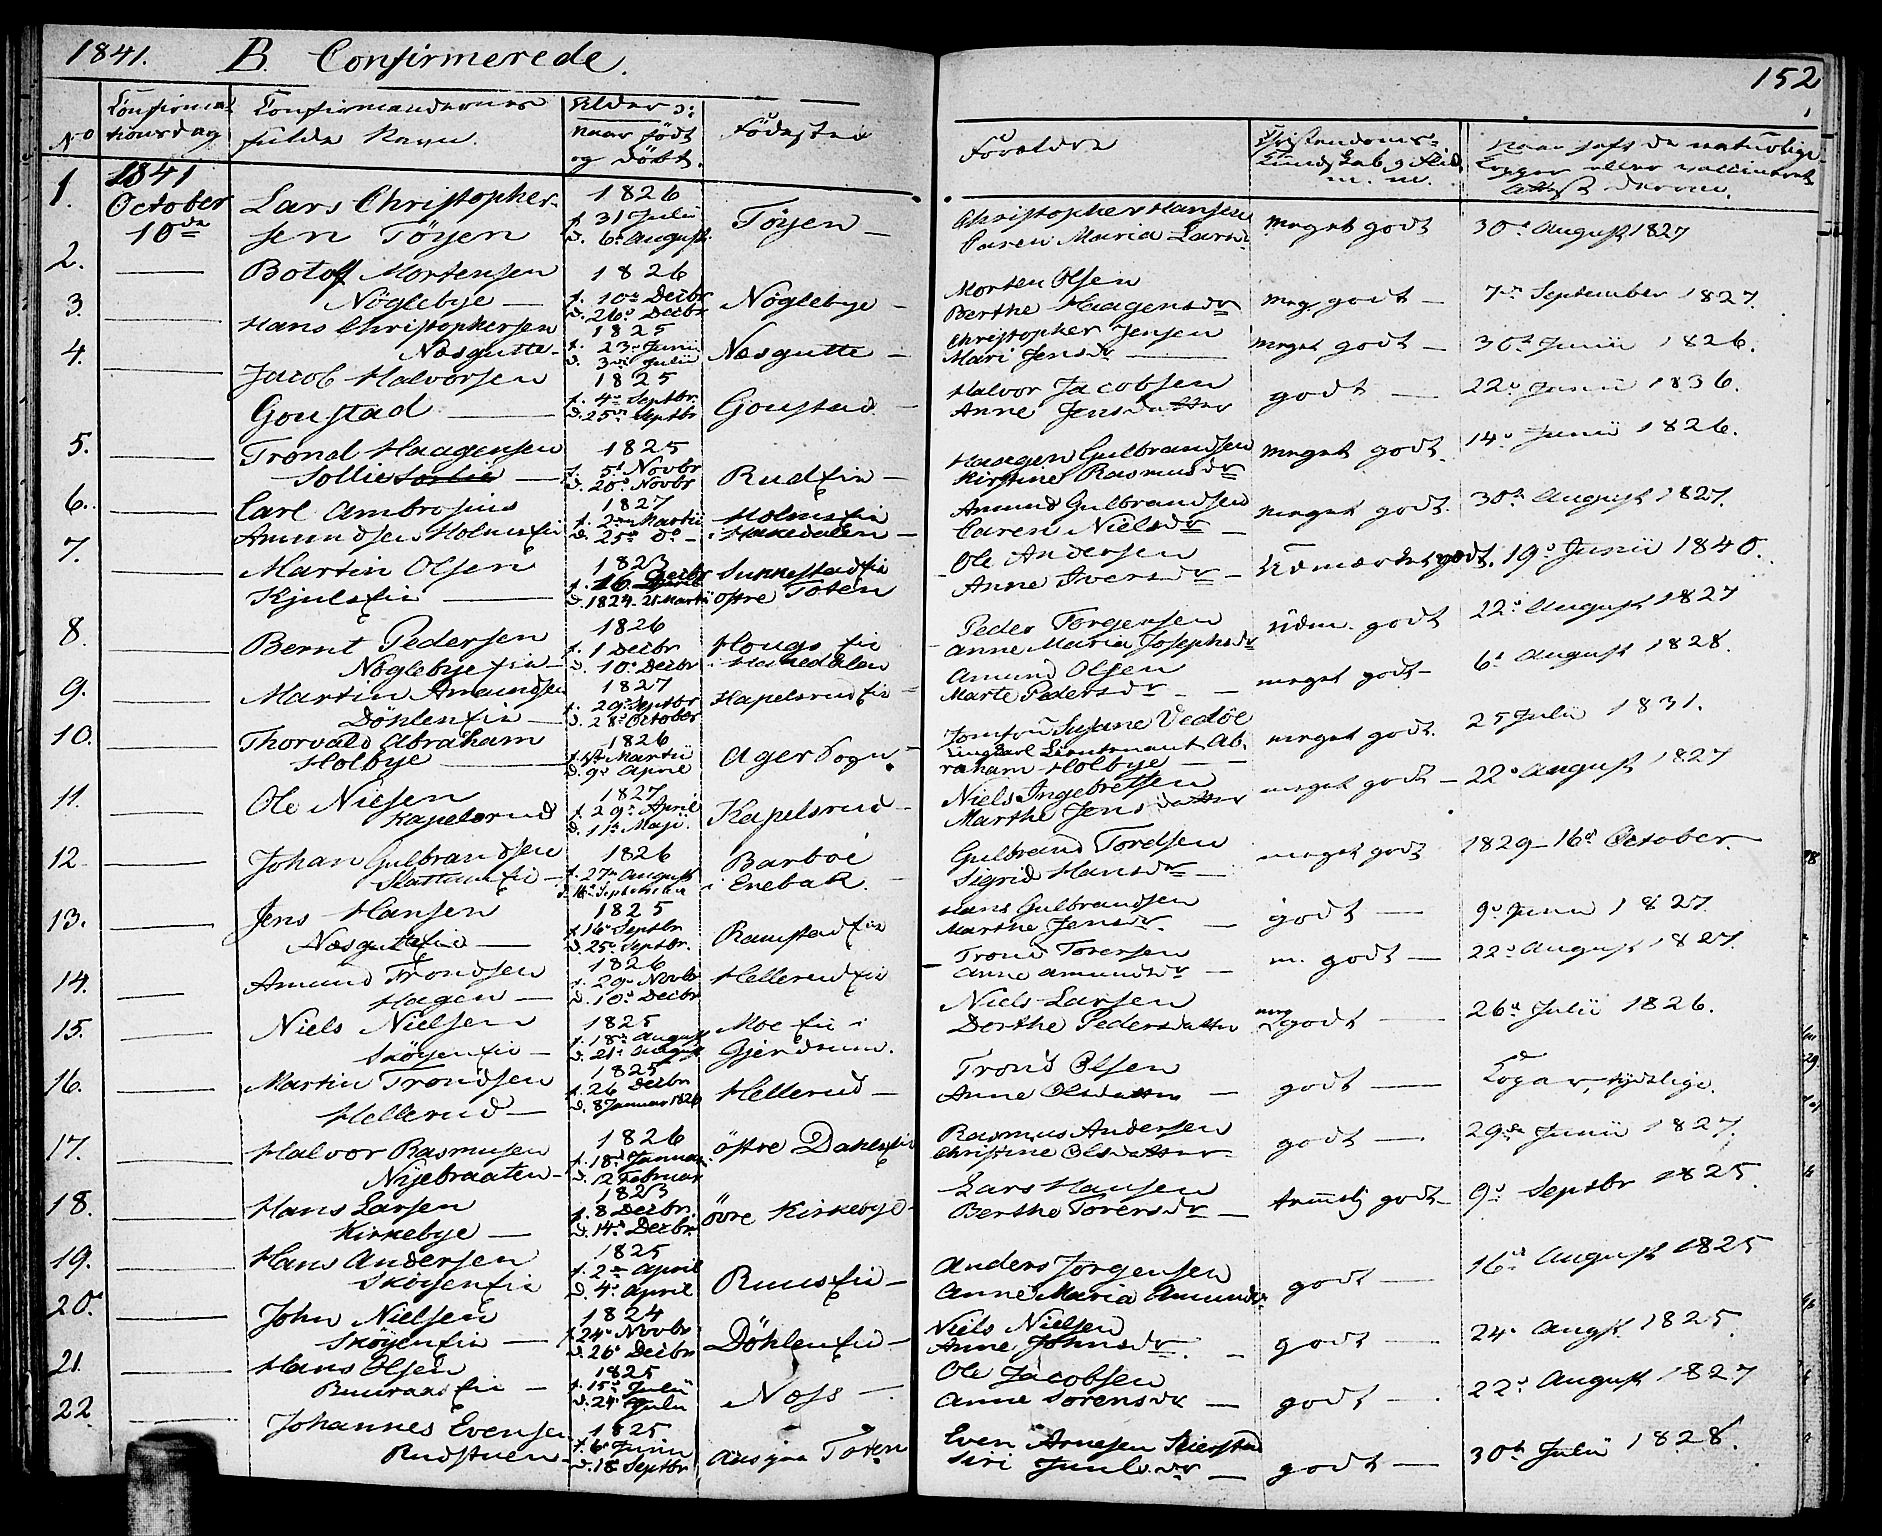 1841. B. Confirmerede.
152
No
Confirma-
tionsdag
Confirmandernes
fulde Navn.
Alder ɔ:
naar født
og døbt.
Fødested
Forældre
Christendoms-
Kundskab og Flid
m. m.
naar hafd de naturlige
Kopper eller vaccineret
Attest derom.
1. 1841
October
10de
Lars Christopher-
sen Töyen
1826
f. 31 Julii
d. 6. August
Töyen
Christopher Hansen
Caren Maria Larsd
meget godt
30. August 1827
2.
Botolf Mortensen
Nöglebye
1826
f. 10. Decbr
d. 26. Decbr
Nöglebye
Morten Olsen
Berthe Haagensdr
meg. godt
7. September 1827.
3.
Hans Christophersen
Næsgutte
1825
f. 23. Junii
d. 3die Julii
Næsgutte
Christopher Jensen
Mari Jensdr
meget godt
30. Junii 1826.
4.
Jacob Halvorsen
Goustad
1825
f. 4. Septbr
d. 25. Septbr
Goustad
Halvor Jacobsen
Anne Jensdatter
godt
22. Junii 1836.
5.
Trond Haagensen
Sollie
1825
f. 5. Novbr
d. 20. Novbr
Rud Eie
Haagen Gulbrandsen
Kirstine Rasmusdr
meget godt.
14. Junii 1826.
6.
Carl Ambrosius
Amundsen Holmseie
1827
f. 2. Martii
d. 25. do
Holmseie
i Hakedalen
Amund Gulbrandsen
Caren Nielsdr
meget godt.
30. August 1827.
7.
Martin Olsen
Kjuls eie
1823
f. 16. Decbr
d. 1824. 21 Martii
Sukkestad eie
östre Toten
Ole Andersen
Anne Iversdr
Udmærket godt.
19. Junii 1840.
8.
Bernt Pedersen
Nöglebye eie
1826
f. 1 Decbr
d. 10. Decbr
Hougs eie
i Hakedalen
Peder Torgersen
Anne Maria Josephsdr
Udm. godt
22. August 1827
9.
Martin Amundsen
Döhlen eie
1827
f. 29. Septbr
d. 28. October
Kapelsrud eie
Amund Olsen
Marte Pedersdr
meget godt
6. August 1828.
10.
Thorvald Abraham
Holbye
1826
f. 1ste Martii
d. 9. April
Ager Sogn.
Jomfru Susane Vedöe
Ungkarl Lieutenant Ab-
raham Holbye
meget godt.
25 Julii 1831.
11.
Ole Nielsen
Kapelsrud
1827
f. 29. April
d. 11. Maji.
Kapelsrud
Niels Ingebretsen
Marthe Jensdatter
meget godt
22. August 1827
12
Johan Gulbrandsen
Slattum eie
1826
f. 27. August
d. 16. September
Barböe
i Enebak
Gulbrand Tordsen
Sigrid Hansdr
meget godt
1829 16. October.
13.
Jens Hansen
Næsgutte eie
1825
f. 16 Septbr
d. 25. Septbr.
Ramstad eie
Hans Gulbrandsen
Marthe Jensdr
godt
9. Junii 1827.
14.
Amund Trondsen
Hagen
1826
f. 29. Novbr
d. 10. Decbr
Hellerud eie
Trond Torersen
Anne Amundsdr
m. godt
22. August 1827.
15.
Niels Nielsen
Skøyen eie
1825
f. 18. August
d. 21. August
Moe eie i
Gjerdrum.
Niels Larsen
Dorthe Pedersdatter
meg godt
26. Julii 1826.
16.
Martin Trondsen
Hellerud
1825
f. 26 Decbr
d. 8 Januar 1826
Hellerud
Trond Olsen
Anne Olsdatter
godt
Kopar, tydelige.
17.
Halvor Rasmusen
Nyebraaten
1826
f. 18. Januar
d. 12 Februar
östre Dahls eie
Rasmus Andersen
Christine Olsdatter
godt
29. Junii 1827.
18.
Hans Larsen
Kirkebye
1823
f. 8 Decbr.
d. 14. Decbr.
övre Kirkebye
Lars Hansen
Berthe Torersdr
temelig godt
9. Septbr 1825.
19.
Hans Andersen
Skøyen eie
1825
f. 2. April
d. 4. April
Ruus eie
Anders Jörgensen
Anne Maria Amundsdr
godt
16. August 1825
20.
John Nielsen
Sköyen eie
1824
f. 24. Novbr
d. 26. Decbr
Döhlen eie
Niels Nielsen
Anne Johnsdr.
godt
24. Augst 1825.
21.
Hans Olsen
Buuraas eie
1825
f. 15. Julii
d. 24. Julii
Næss
Ole Jacobsen
Anne Sorensdr
godt
22. August 1827
22
Johannes Evensen
Rudstuen
1825
f. 6. Junii
d. 18. Septbr
Toten
Even Arnesen
Siri Juulsdr
godt
30. Julii 1828.